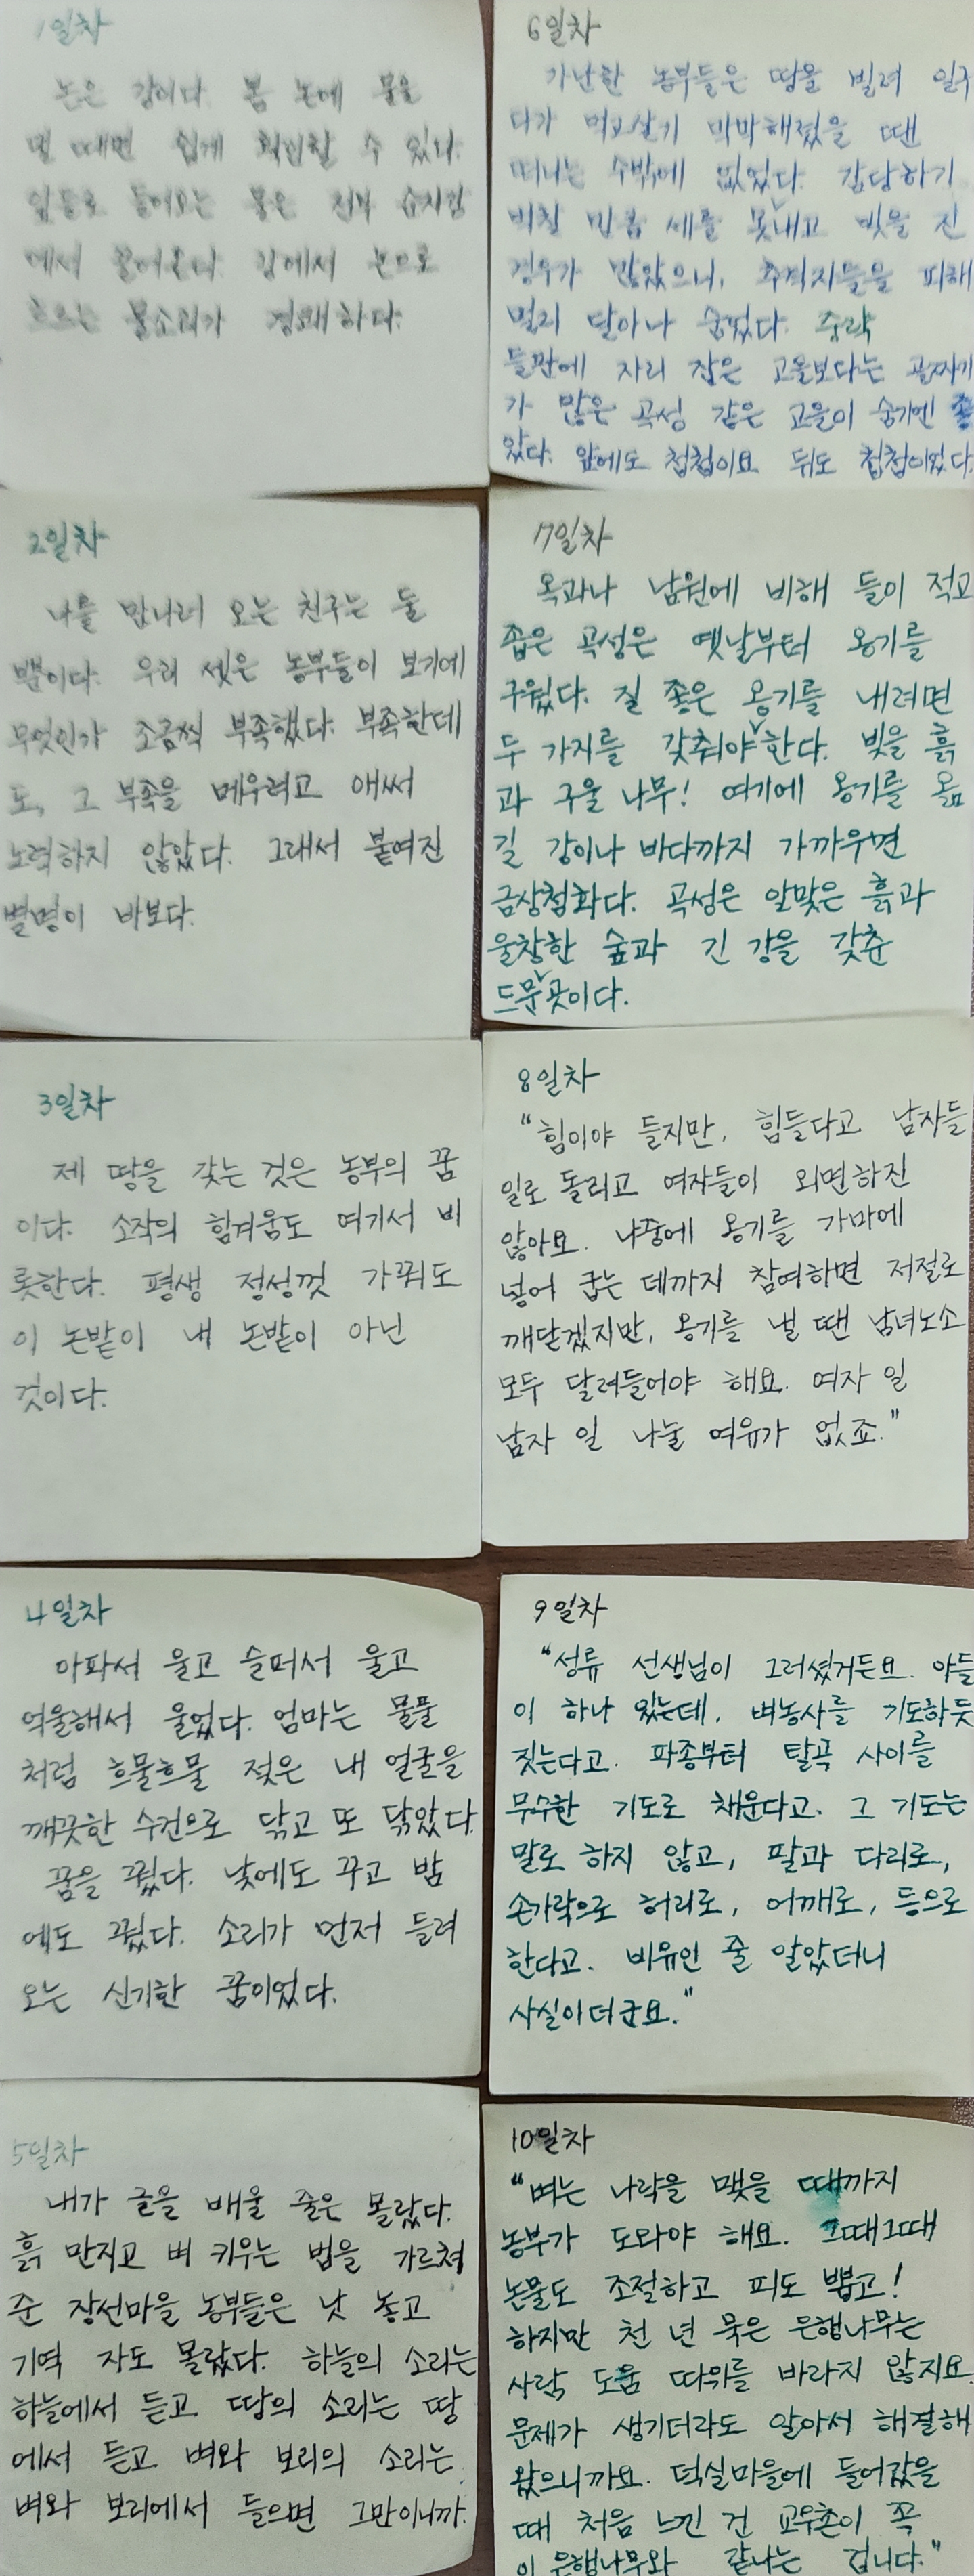 1일차
논은 강이다. 봄 논에 물을
댈 때면 쉽게 확인할 수 있다.
앞들로 들어오는 물은 전부 순자강
에서 끌어온다. 강에서 논으로
흐르는 물소리가 경쾌하다.
2일차
나를 만나러 오는 친구는 둘
뿐이다. 우리 셋은 농부들이 보기에
무엇인가 조금씩 부족했다. 부족한데
도, 그 부족을 메우려고 애써
노력하지 않았다. 그래서 붙여진
별명이 바보다.
3일차
제 땅을 갖는 것은 농부의 꿈
이다. 소작의 힘겨움도 여기서 비
롯한다. 평생 정성껏 가꿔도
이 논밭이 내 논밭이 아닌
것이다.
4일차
아파서 울고 슬퍼서 울고
억울해서 울었다. 엄마는 물풀
처럼 흐물흐물 젖은 내 얼굴을
깨끗한 수건으로 닦고 또 닦았다.
꿈을 꿨다. 낮에도 꾸고 밤
에도 꿨다. 소리가 먼저 들려
오는 신기한 꿈이었다.
5일차
내가 글을 배울 줄은 몰랐다.
흙 만지고 벼 키우는 법을 가르쳐
준 장선마을 농부들은 낫 놓고
기역 자도 몰랐다. 하늘의 소리는
하늘에서 듣고 땅의 소리는 땅
에서 듣고 벼와 보리의 소리는
벼와 보리에서 들으면 그만이니까.
6일차
가난한 농부들은 땅을 빌려 일구
다가 먹고살기 박박해졌을 땐
떠나는 수밖에 없었다. 감당하기
벅찰 만큼 세를 못내고 빚을 진
경우가 많았으니, 추격자들을 피해
멀리 달아나 숨었다. 중략
들판에 자리 잡은 고을보다는 골짜기
가 많은 곡성 같은 고을이 숨기엔 좋
았다. 앞에도 첩첩이요 뒤도 첩첩이었다.
7일차
옥과나 남원에 비해 들이 적고
좁은 곡성은 옛날부터 옹기를
구웠다. 질 좋은 옹기를 내려면
두 가지를 갖춰야 한다. 빚을 흙
과 구울 나무! 여기에 옹기를 옮
길 강이나 바다까지 가까우면
금상첨화다. 곡성은 알맞은 흙과
울창한 숲과 긴 강을 갖춘
드문 곳이다.
8일차
"힘이야 들지만, 힘들다고 남자들
일로 돌리고 여자들이 외면하진
않아요. 나중에 옹기를 가마에
넣어 굽는 데까지 참여하면 저절로
깨닫겠지만, 옹기를 낼 땐 남녀노소
모두 달려들어야 해요. 여자 일
남자 일 나눌 여유가 없죠."
9일차
"성류 선생님이 그러셨거든요. 아들
이 하나 있는데, 벼농사를 기도하듯
짓는다고. 파종부터 탈곡 사이를
무수한 기도로 채운다고. 그 기도는
말로 하지 않고, 팔과 다리로,
손가락으로 허리로, 어깨로, 등으로
한다고. 비유인 줄 알았더니
사실이더군요."
10일차
"벼는 나락을 맺을 때까지
농부가 도와야 해요. 그때그때
논물도 조절하고 피도 뽑고!
하지만 천 년 묵은 은행나무는
사람 도움 따위를 바라지 않지요.
문제가 생기더라도 알아서 해결해
왔으니까요. 덕실마을에 들어갔을
때 처음 느낀 건 교우촌이 꼭
이 은행나무와 같다는 겁니다."